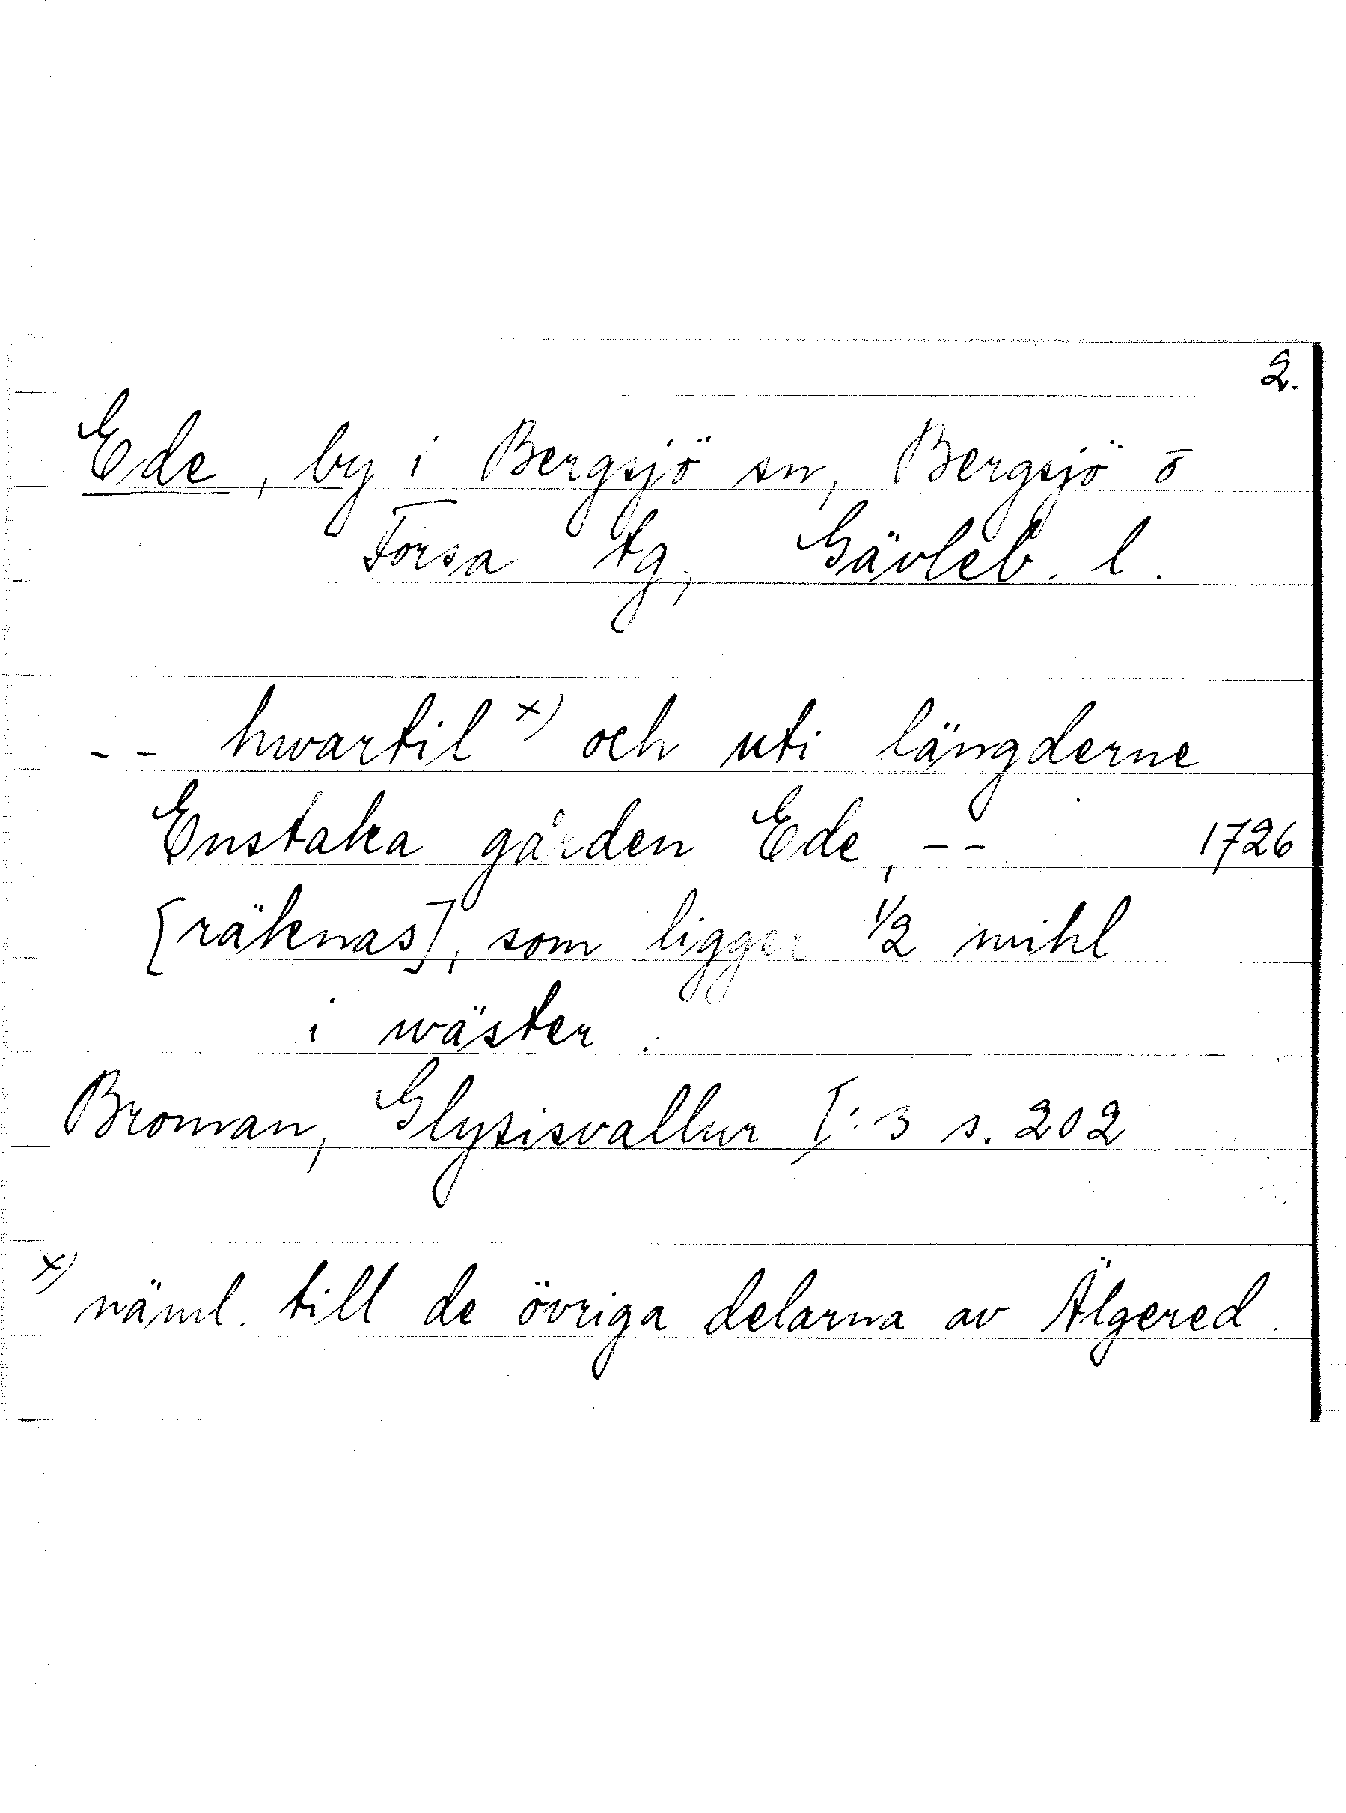 2.
Ede, by i Bergsjö sn, Bergsjö o
Forsa tg, Gävleb. l.
-- hwartil x) och uti längderne
Enstaka gården Ede, -- 1726
[räknas], som ligger 1/2 mihl
i wäster.
Broman, Glysisvallur I:3 s. 202
x) näml. till de övriga delarna av Älgered.